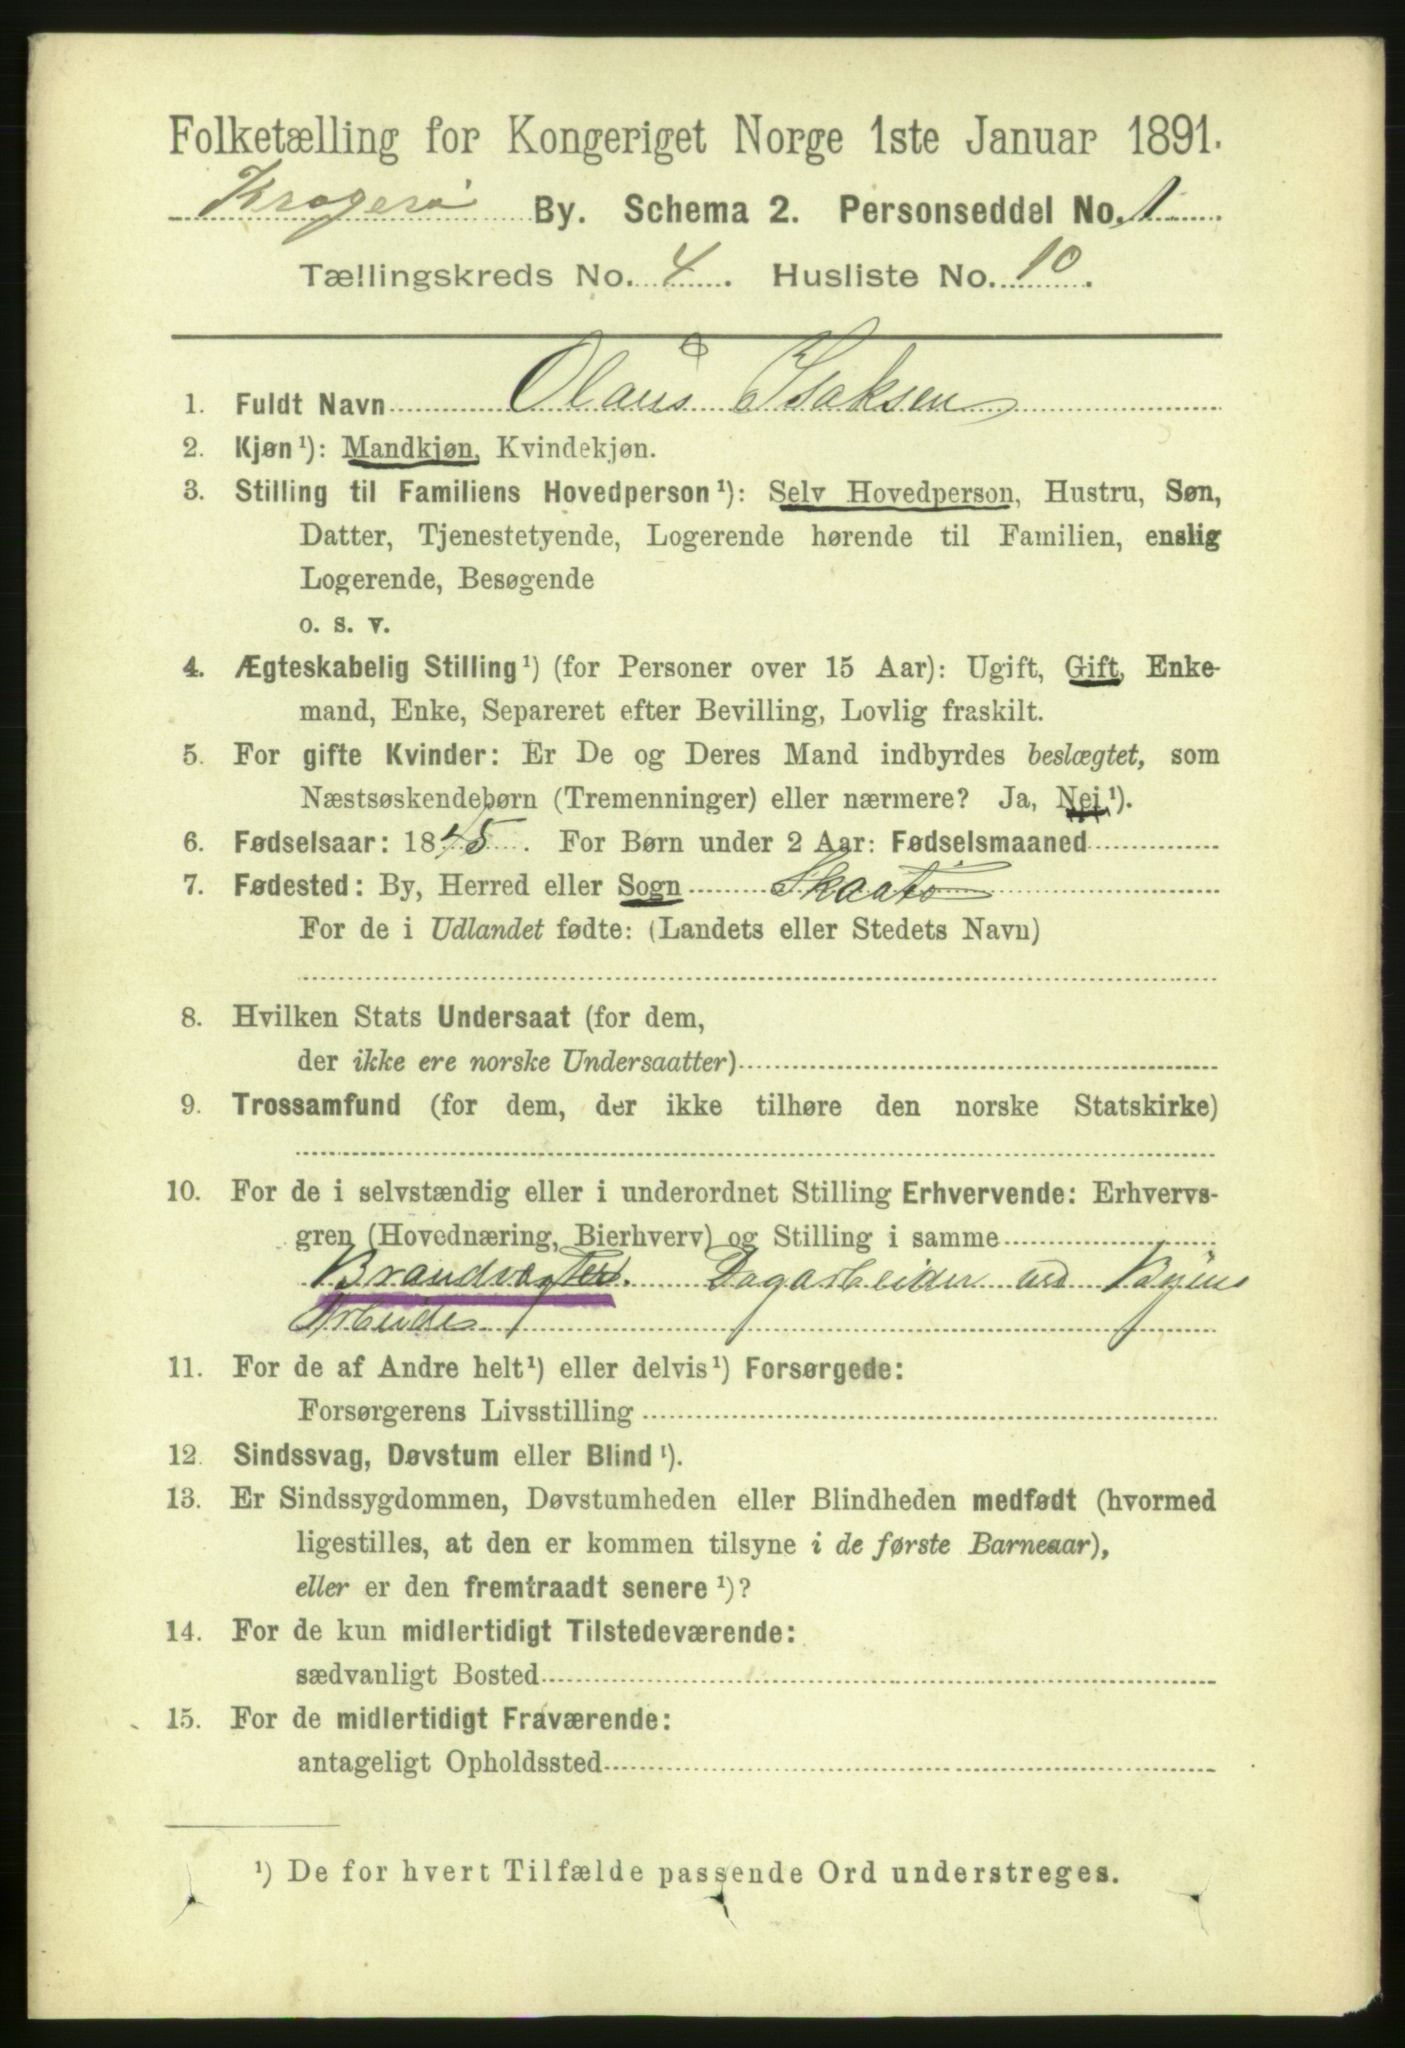 Folketælling for Kongeriget Norge 1ste Januar 1891.
Kragerø By. Schema 2. Personseddel No. 1
Tællingskreds No. 4. Husliste No. 10.
1. Fuldt Navn Olaus Isaksen
2. Kjøn¹): Mandkjøn, Kvindekjøn.
3. Stilling til Familiens Hovedperson¹): Selv Hovedperson, Hustru, Søn,
Datter, Tjenestetyende, Logerende hørende til Familien, enslig
Logerende, Besøgende
o. s. v.
4. Ægteskabelig Stilling¹) (for Personer over 15 Aar): Ugift, Gift, Enke-
mand, Enke, Separeret efter Bevilling, Lovlig fraskilt.
5. For gifte Kvinder: Er De og Deres Mand indbyrdes beslægtet, som
Næstsøskendebørn (Tremenninger) eller nærmere? Ja, Nei¹).
6. Fødselsaar: 1845. For Børn under 2 Aar: Fødselsmaaned
7. Fødested: By, Herred eller Sogn Skaatø
For de i Udlandet fødte: (Landets eller Stedets Navn)
8. Hvilken Stats Undersaat (for dem,
der ikke ere norske Undersaatter)
9. Trossamfund (for dem, der ikke tilhøre den norske Statskirke)
10. For de i selvstændig eller i underordnet Stilling Erhvervende: Erhvervs-
gren (Hovednæring, Bierhverv) og Stilling i samme
Brandvagter. Dagarbeider ved Byens
Arbeide
11. For de af Andre helt¹) eller delvis¹) Forsørgede:
Forsørgerens Livsstilling
12. Sindssvag, Døvstum eller Blind¹).
13. Er Sindssygdommen, Døvstumheden eller Blindheden medfødt (hvormed
ligestilles, at den er kommen tilsyne i de første Barneaar),
eller er den fremtraadt senere¹)?
14. For de kun midlertidigt Tilstedeværende:
sædvanligt Bosted
15. For de midlertidigt Fraværende:
antageligt Opholdssted
¹) De for hvert Tilfælde passende Ord understreges.